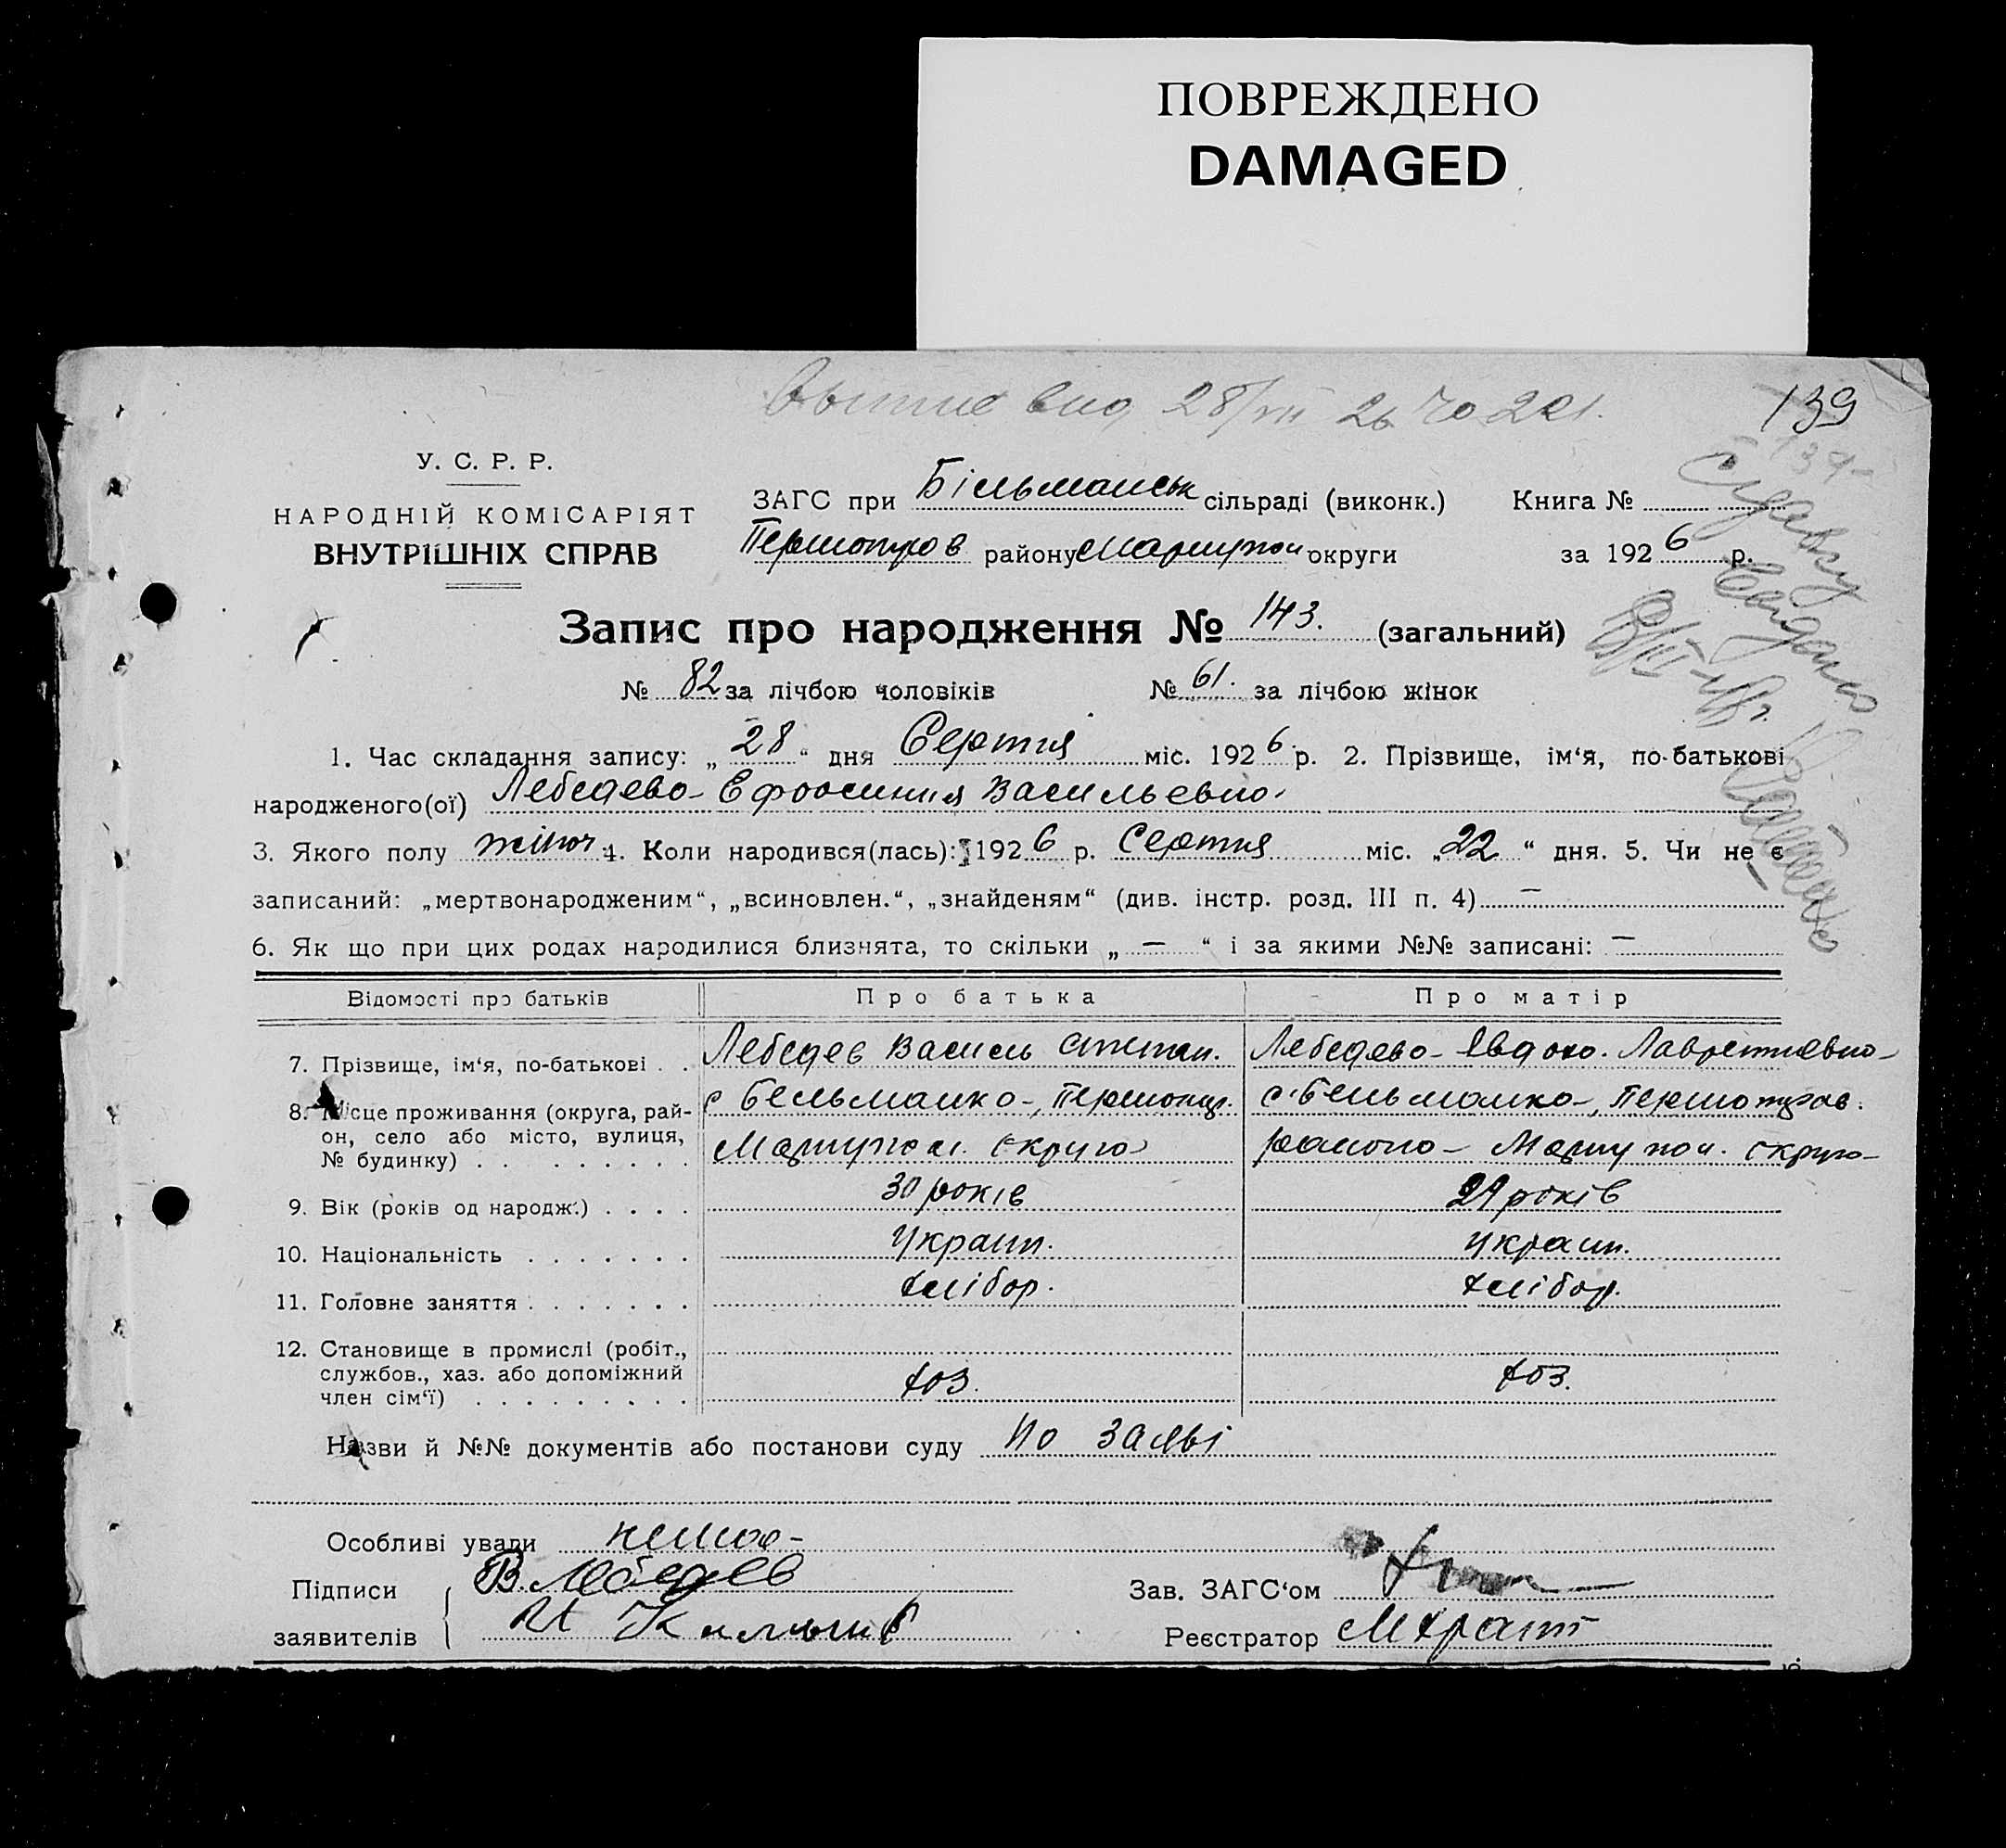 ПОВРЕЖДЕНО
DAMAGED
28/VII 26
139
У. С. Р. Р.
НАРОДНІЙ КОМІСАРІЯТ
ВНУТРІШНІХ СПРАВ
ЗАГС при Більманськ сільраді (виконк.) Книга №
Першотров району Маріупол округи за 1926 р.
Запис про народження № 143. (загальний)
№ 82 за лічбою чоловіків № 61. за лічбою жінок
1. Час складання запису: „28“ дня Серпня міс. 1926 р. 2. Прізвище, ім‘я, по-батькові
народженого(ої) Лебедева Ефросиния Васильевна
3. Якого полу жіноч. 4. Коли народився(лась): 1926 р. Серпня міс. „22“ дня. 5. Чи не є
записаний: „мертвонародженим“, „всиновлен.“, „знайденям“ (див. інстр. розд. III п. 4) —
6. Як що при цих родах народилися близнята, то скільки „ — “ і за якими №№ записані: —
Відомості про батьків Про батька Про матір
7. Прізвище, ім‘я, по-батькові . . Лебедев Василь Степан. Лебедева Евдок. Лаврентиевна
8. Місце проживання (округа, рай-
он, село або місто, вулиця,
№ будинку) . . . . . . . . .
с Бельманка, Першотр. с. Бельманка, Першотров.
Маріупол. округа района Маріупол. округа
9. Вік (років од народж.) . . . . 30 років 29 років
10. Національність . . . . . . . Україн. Україн.
11. Головне заняття . . . . . . . хлібор. хлібор.
12. Становище в промислі (робіт.,
службов., хаз. або допоміжний
член сім‘ї) . . . . . . . . . хоз. хоз.
Назви й №№ документів або постанови суду по заяві
Особливі уваги нема
Підписи В. Лебедев Зав. ЗАГС‘ом
заявителів Реєстратор